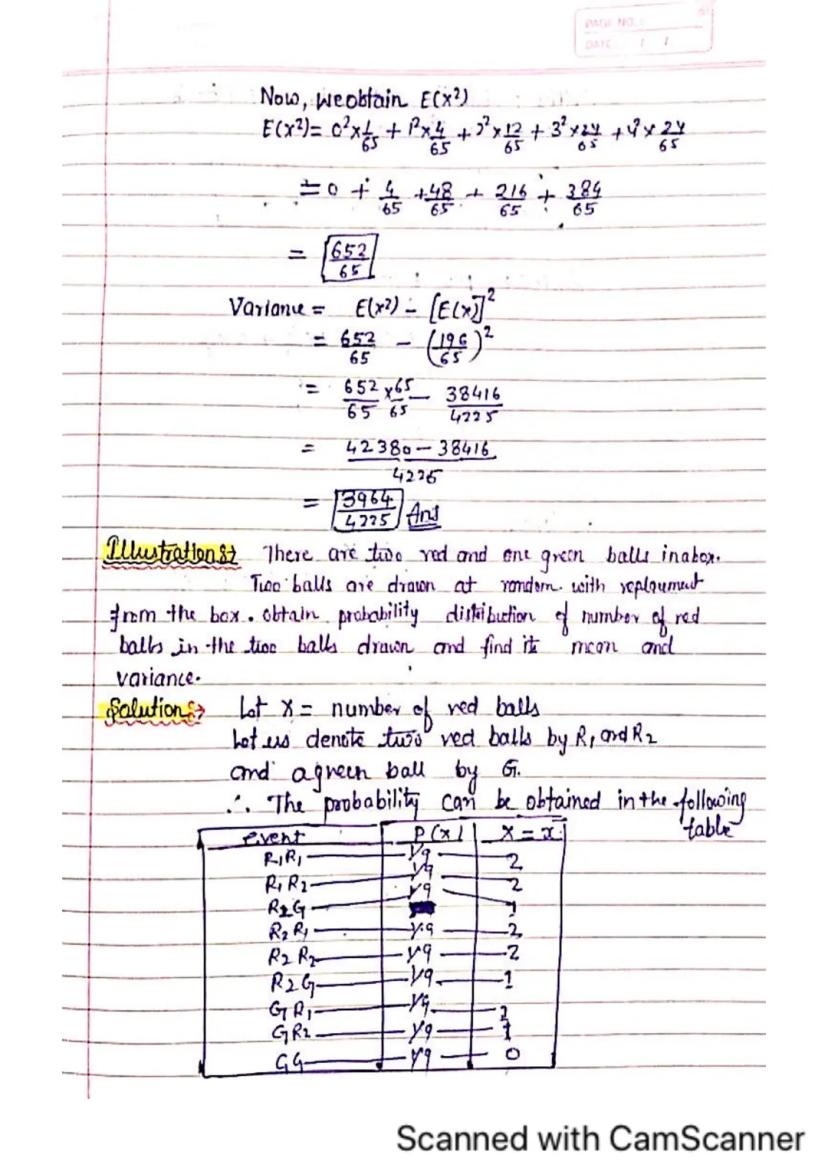 PAGE NO.
DATE / /
Now, we obtain E(x²)
E(x²) = 0²x1/65 + 1²x4/65 + 2²x12/65 + 3²x24/65 + 4²x24/65
= 0 + 4/65 + 48/65 + 216/65 + 384/65
= 652/65
Variance = E(x²) - [E(x)]²
= 652/65 - (196/65)²
= 652/65 x 65/65 - 38416/4225
= 42380 - 38416
4225
= 3964/4225 Ans
Illustration 8: There are two red and one green balls in a box.
Two balls are drawn at random with replacement
from the box. obtain probability distribution of number of red
balls in the two balls drawn and find its mean and
variance.
Solution:→ Let X = number of red balls
Let us denote two red balls by R₁ and R₂
and a green ball by G.
∴ The probability can be obtained in the following
table
event P(x) X = x
R₁R₁ 1/9 2
R₁R₂ 1/9 2
1/9 1
R₂R₁ 1/9 2
R₂R₂ 1/9 2
R₂G 1/9 1
GR₁ 1/9 1
GR₂ 1/9 1
GG 1/9 0
Scanned with CamScanner